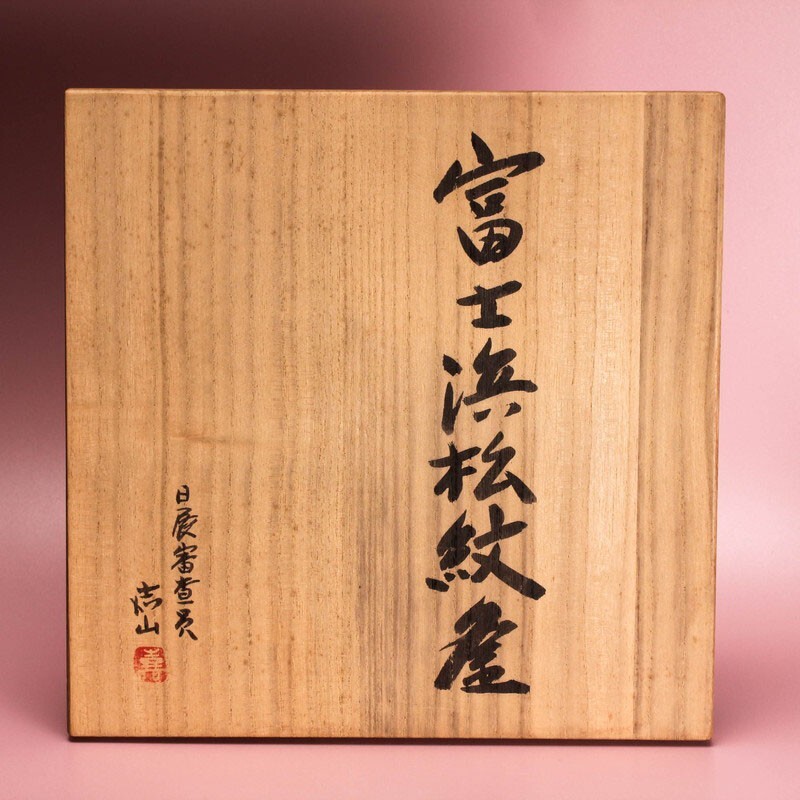 富士浜松紋釜
日展審査員
山